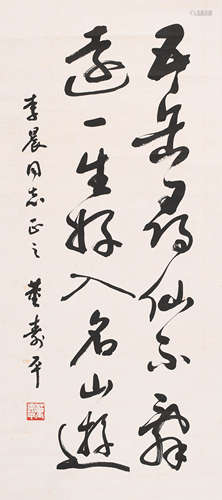 五岳寻仙不辞
远一生好入名山游
李晨同志正之
董寿平